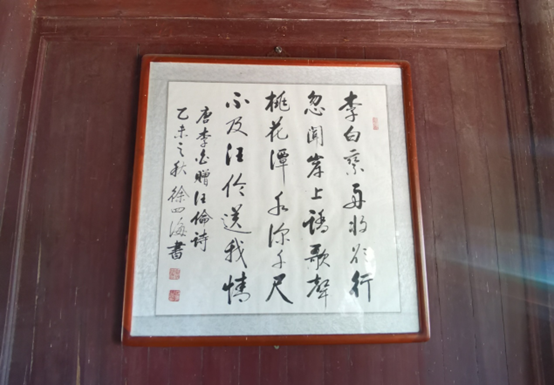 李白乘舟将欲行
忽闻岸上踏歌聲
桃花潭水深千尺
不及汪伦送我情
唐李白贈汪倫詩
乙未之秋徐四海書